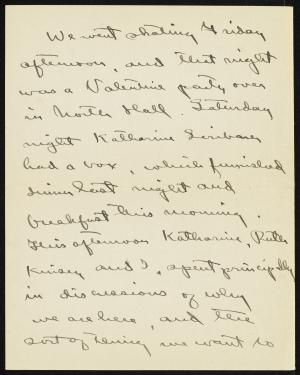 We went skating Friday
afternoon, and that night
was a Valentine party over
in North Hall. Saturday
night Katharine
had a box, which furnished
dinner last night and
breakfast this morning.
This afternoon Katharine, Ruth
Kinsey and I, spent principally
in discussions of why
we are here, and the
sort of being we want to